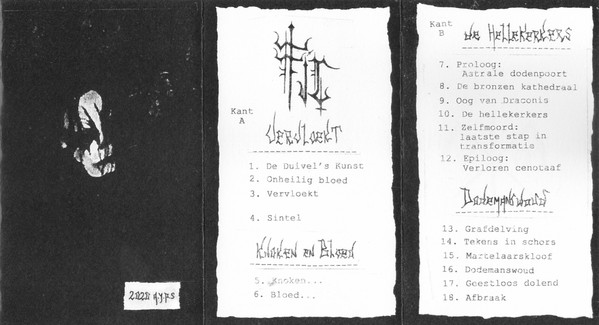 Kant
A
Vervloekt
1. De Duivel's Kunst
2. Onheilig bloed
3. Vervloekt
4. Sintel
Knoken en Bloed
5. Knoken...
6. Bloed...
Kant
B
De Hellekerkers
7. Proloog:
Astrale dodenpoort
8. De bronzen kathedraal
9. Oog van Draconis
10. De hellekerkers
11. Zelfmoord:
laatste stap in
transformatie
12. Epiloog:
Verloren cenotaaf
Dodemanswoud
13. Grafdelving
14. Tekens in schors
15. Martelaarskloof
16. Dodemanswoud
17. Geestloos dolend
18. Afbraak